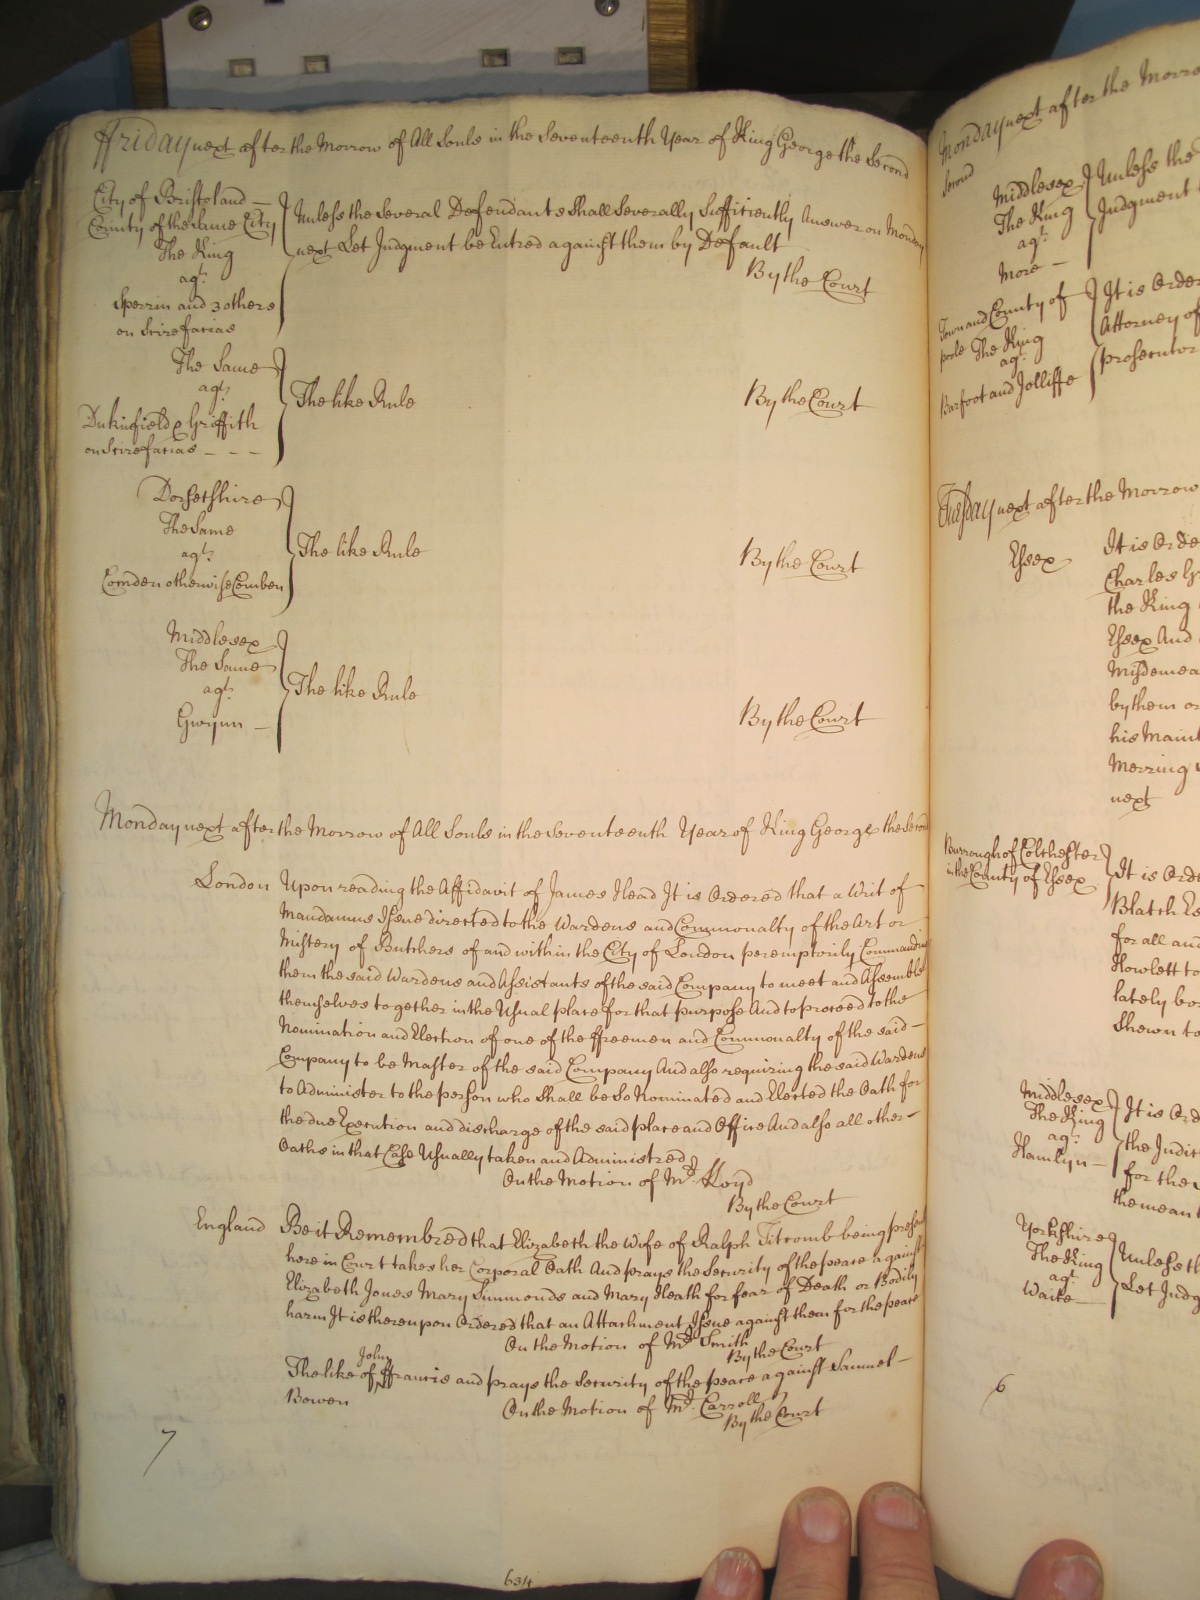 Friday next after the Morrow of All Souls in the Seventeenth Year of King George the Second
City of Bristol and —
County of the same City
The King
agt.
Sperrin and 3 others
on Scire facias
Unless the several Defendants shall severally sufficiently Answer on Monday
next Let Judgment be Entred against them by Default
By the Court
The Same
agt.
Dukinfield & Griffith
on Scire facias - - -
The like Rule
By the Court
Dorsetshire
The Same
agt.
Comden otherwise Comben
The like Rule
By the Court
Middlesex
The Same
agt.
Gwynn —
The like Rule
By the Court
Monday next after the Morrow of All Souls in the Seventeenth Year of King George the Second
London Upon reading the Affidavit of James Head It is Ordered that a Writ of
Mandamus Issue directed to the Wardens and Commonalty of the Art or
Mistery of Butchers of and within the City of London peremptorily Commanding
them the said Wardens and Assistants of the said Company to meet and Assemble
themselves together in the Usual place for that purpose And to proceed to the
Nomination and Election of one of the ffreemen and Commonalty of the said —
Company to be Master of the said Company And also requiring the said Wardens
to Administer to the person who shall be so Nominated and Elected the Oath for
the due Execution and discharge of the said place and Office And also all other —
Oaths in that Case Usually taken and Administred
On the Motion of Mr. Lloyd
By the Court
England Be it Remembred that Elizabeth the Wife of Ralph Titcomb being present
here in Court takes her Corporal Oath And prays the Security of the peace against
Elizabeth Jones Mary Simmonds and Mary Heath for fear of Death or Bodily
harm It is thereupon Ordered that an Attachment Issue against them for the peace
On the Motion of Mr. Smith
By the Court
John
The like of ffrancis and prays the Security of the peace against Samuel —
Bowen
On the Motion of Mr. Carroll
By the Court
7
634
Monday next after the Morrow
Second
Middlesex
The King
agt.
More —
Unless the
Judgment
Town and County of
poole The King
agt.
Barfoot and Jolliffe
It is Order
Attorney of
prosecutor
Tuesday next after the Morrow
Essex
It is Orde
Charles
the King
Essex And
Misdemea
by them or
his
Merring
next
Burrough of Colchester
in the County of Essex
It is Orde
Blatch
for all and
Howlett to
lately
Shewn to
Middlesex
The King
agt.
Hamlyn —
It is Ord
the Indic
for the
the mean
Yorkshire
The King
agt.
Waite —
Unless th
Let Judg
6